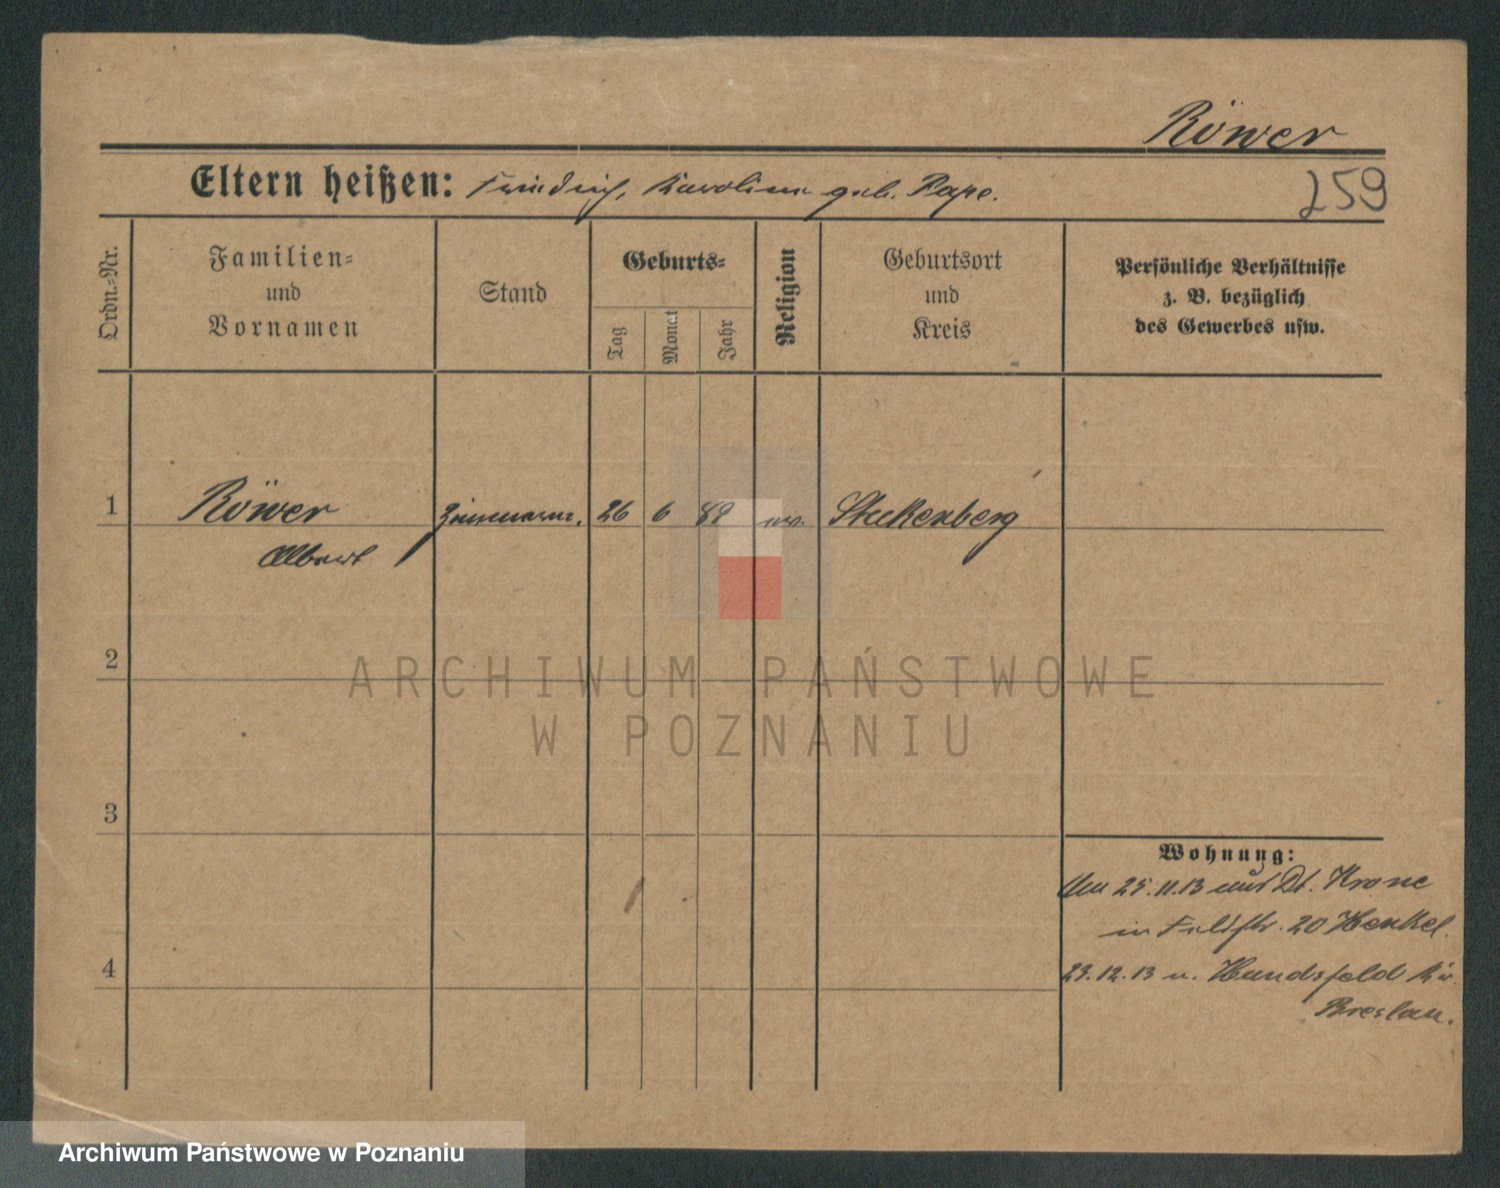 Röwer
Eltern heißen: Friedrich, Karoline geb. Pape.
259
Ordn.-Nr.
Familien-
und
Vornamen
Stand
Geburts-
Tag
Monat
Jahr
Religion
Geburtsort
und
Kreis
Persönliche Verhältnisse
z. B. bezüglich
des Gewerbes usw.
1
Röwer
Albert
Zimmerm.
26
6
89
ev.
Steckenberg
2
ARCHIWUM PAŃSTWOWE
W POZNANIU
3
Wohnung:
25.11.13 aus Dt. Krone
in Feldstr. 20 Henkel.
4
23.12.13 n. Hundsfeld
Breslau.
Archiwum Państwowe w Poznaniu